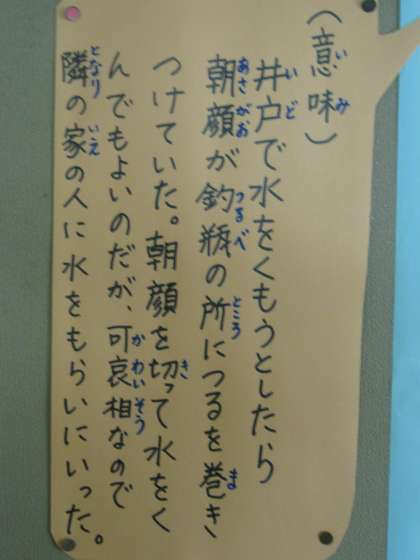 （意味）
井戸で水をくもうとしたら
朝顔が釣瓶の所につるを巻き
つけていた。朝顔を切って水をく
んでもよいのだが、可哀相なので
隣の家の人に水をもらいにいった。